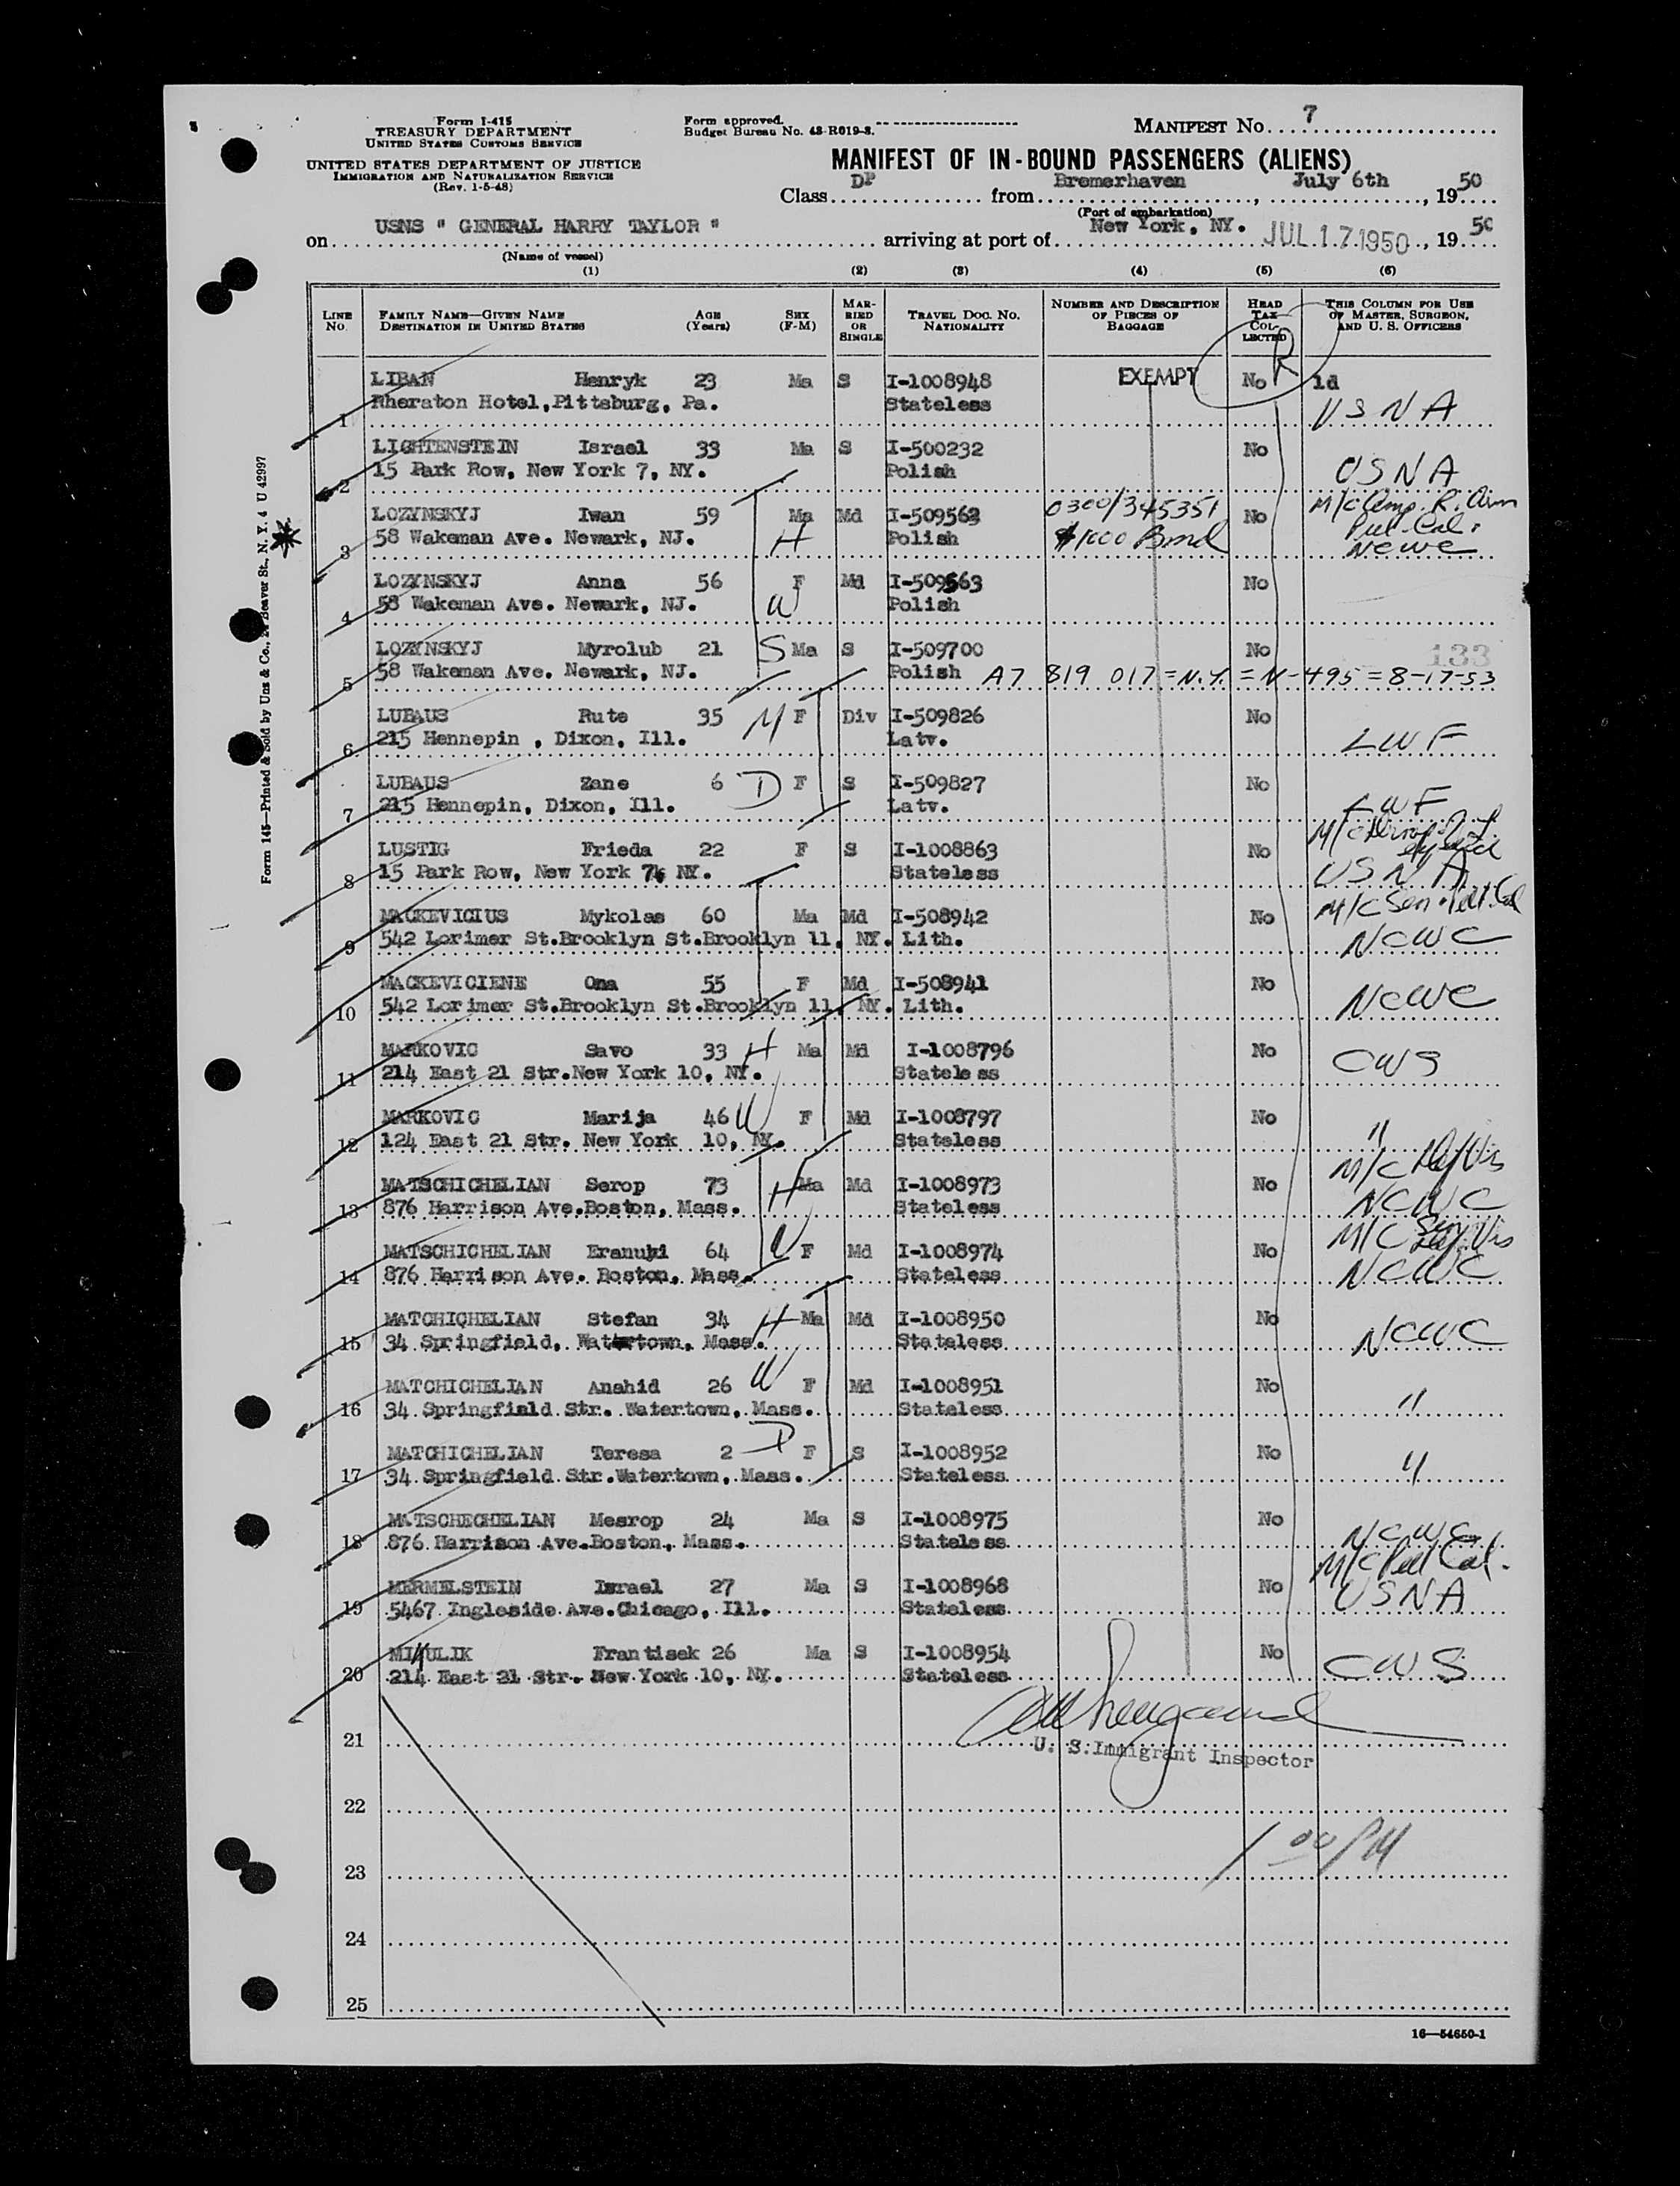 Form I-415
TREASURY DEPARTMENT
UNITED STATES CUSTOMS SERVICE
UNITED STATES DEPARTMENT OF JUSTICE
IMMIGRATION AND NATURALIZATION SERVICE
(Rev. 1-5-48)
Form approved.
Budget Bureau No. 43-R019-3.
MANIFEST No. 7
MANIFEST OF IN-BOUND PASSENGERS (ALIENS)
Class DP from Bremerhaven, July 6th, 1950
(Port of embarkation)
on USNS " GENERAL HARRY TAYLOR " arriving at port of New York, NY. JUL 17 1950, 1950
(Name of vessel)
(1) (2) (3) (4) (5) (6)
LINE No. FAMILY NAME—GIVEN NAME DESTINATION IN UNITED STATES AGE (Years) SEX (F-M) MARRIED OR SINGLE TRAVEL DOC. NO. NATIONALITY NUMBER AND DESCRIPTION OF PIECES OF BAGGAGE HEAD TAX COLLECTED THIS COLUMN FOR USE OF MASTER, SURGEON, AND U. S. OFFICERS
R
LIBAN Henryk 23 Ma S I-1008948 EXEMPT No 1d
1 Rheraton Hotel,Pittsburg, Pa. Stateless USNA
LIGHTENSTEIN Israel 33 Ma S I-500232 No
2 15 Park Row, New York 7, NY. Polish USNA
LOZYNSKYJ Iwan 59 Ma Md I-509562 0300/345351 No M/C Amp. R. Arm
3 58 Wakeman Ave. Newark, NJ. H Polish $1000 Bond Pul. Cal. NCWC
LOZYNSKYJ Anna 56 F Md I-509563 No
4 58 Wakeman Ave. Newark, NJ. W Polish
LOZYNSKYJ Myrolub 21 S Ma S I-509700 No 133
5 58 Wakeman Ave. Newark, NJ. Polish A7 819 017 = N.Y. = N-495 = 8-17-53
LUBAUS Rute 35 M F Div I-509826 No
6 215 Hennepin , Dixon, Ill. Latv. LWF
LUBAUS Zane 6 D F S I-509827 No
7 215 Hennepin, Dixon, Ill. Latv. LWF
M/C
LUSTIG Frieda 22 F S I-1008863 No
8 15 Park Row, New York 7, NY. Stateless USNA
MACKEVICIUS Mykolas 60 Ma Md I-508942 No M/C Sen. Pul. Cal
9 542 Lorimer St.Brooklyn St.Brooklyn 11, NY. Lith. NCWC
MACKEVICIENE Ona 55 F Md I-508941 No
10 542 Lorimer St.Brooklyn St.Brooklyn 11, NY. Lith. NCWC
MARKOVIC Savo 33 H Ma Md I-1008796 No
11 214 East 21 Str.New York 10, NY. Stateless CWS
MARKOVIC Marija 46 W F Md I-1008797 No
12 124 East 21 Str. New York 10, NY. Stateless "
M/C Def Vis
MATSCHICHELIAN Serop 73 H Ma Md I-1008973 No
13 876 Harrison Ave.Boston, Mass. Stateless NCWC
M/C Sen Def. Vis
MATSCHICHELIAN Eranuhi 64 W F Md I-1008974 No
14 876 Harrison Ave. Boston, Mass. Stateless NCWC
MATCHICHELIAN Stefan 34 H Ma Md I-1008950 No
15 34 Springfield, Watertown, Mass. Stateless NCWC
MATCHICHELIAN Anahid 26 W F Md I-1008951 No
16 34 Springfiald Str. Watertown, Mass. Stateless "
MATCHICHELIAN Teresa 2 D F S I-1008952 No
17 34 Springfield Str.Watertown, Mass. Stateless "
MATSCHECHELIAN Mesrop 24 Ma S I-1008975 No
18 876 Harrison Ave.Boston, Mass. Stateless NCWC
M/C Pul Cal.
MERMELSTEIN Israel 27 Ma S I-1008968 No
19 5467 Ingleside Ave.Chicago, Ill. Stateless USNA
MIKULIK Frantisek 26 Ma S I-1008954 No
20 214 East 21 Str. New York 10, NY. Stateless CWS
21
U. S. Immigrant Inspector
22
1 00 PM
23
24
25
16—54650-1
Form 145—Printed & Sold by Unz & Co., Beaver St., N. Y. 4 U 42997